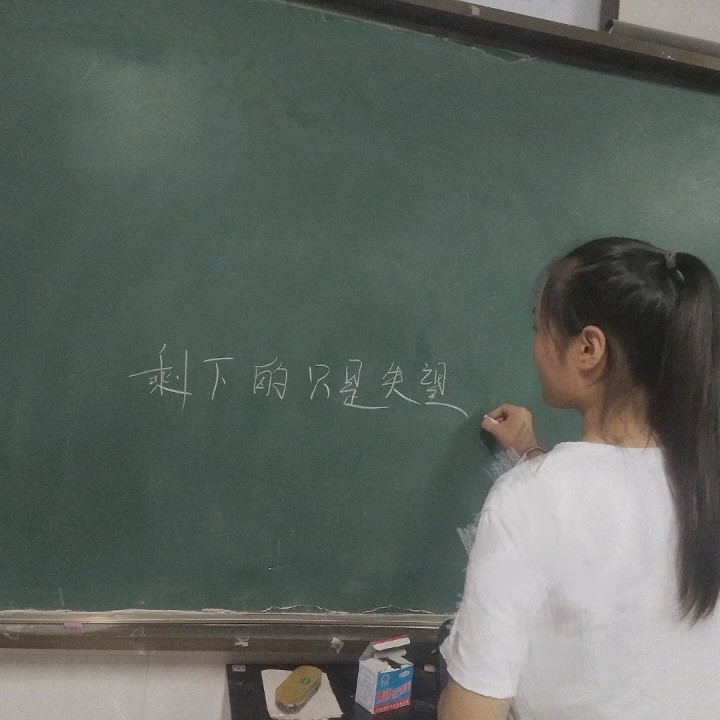 剩下的只是失望